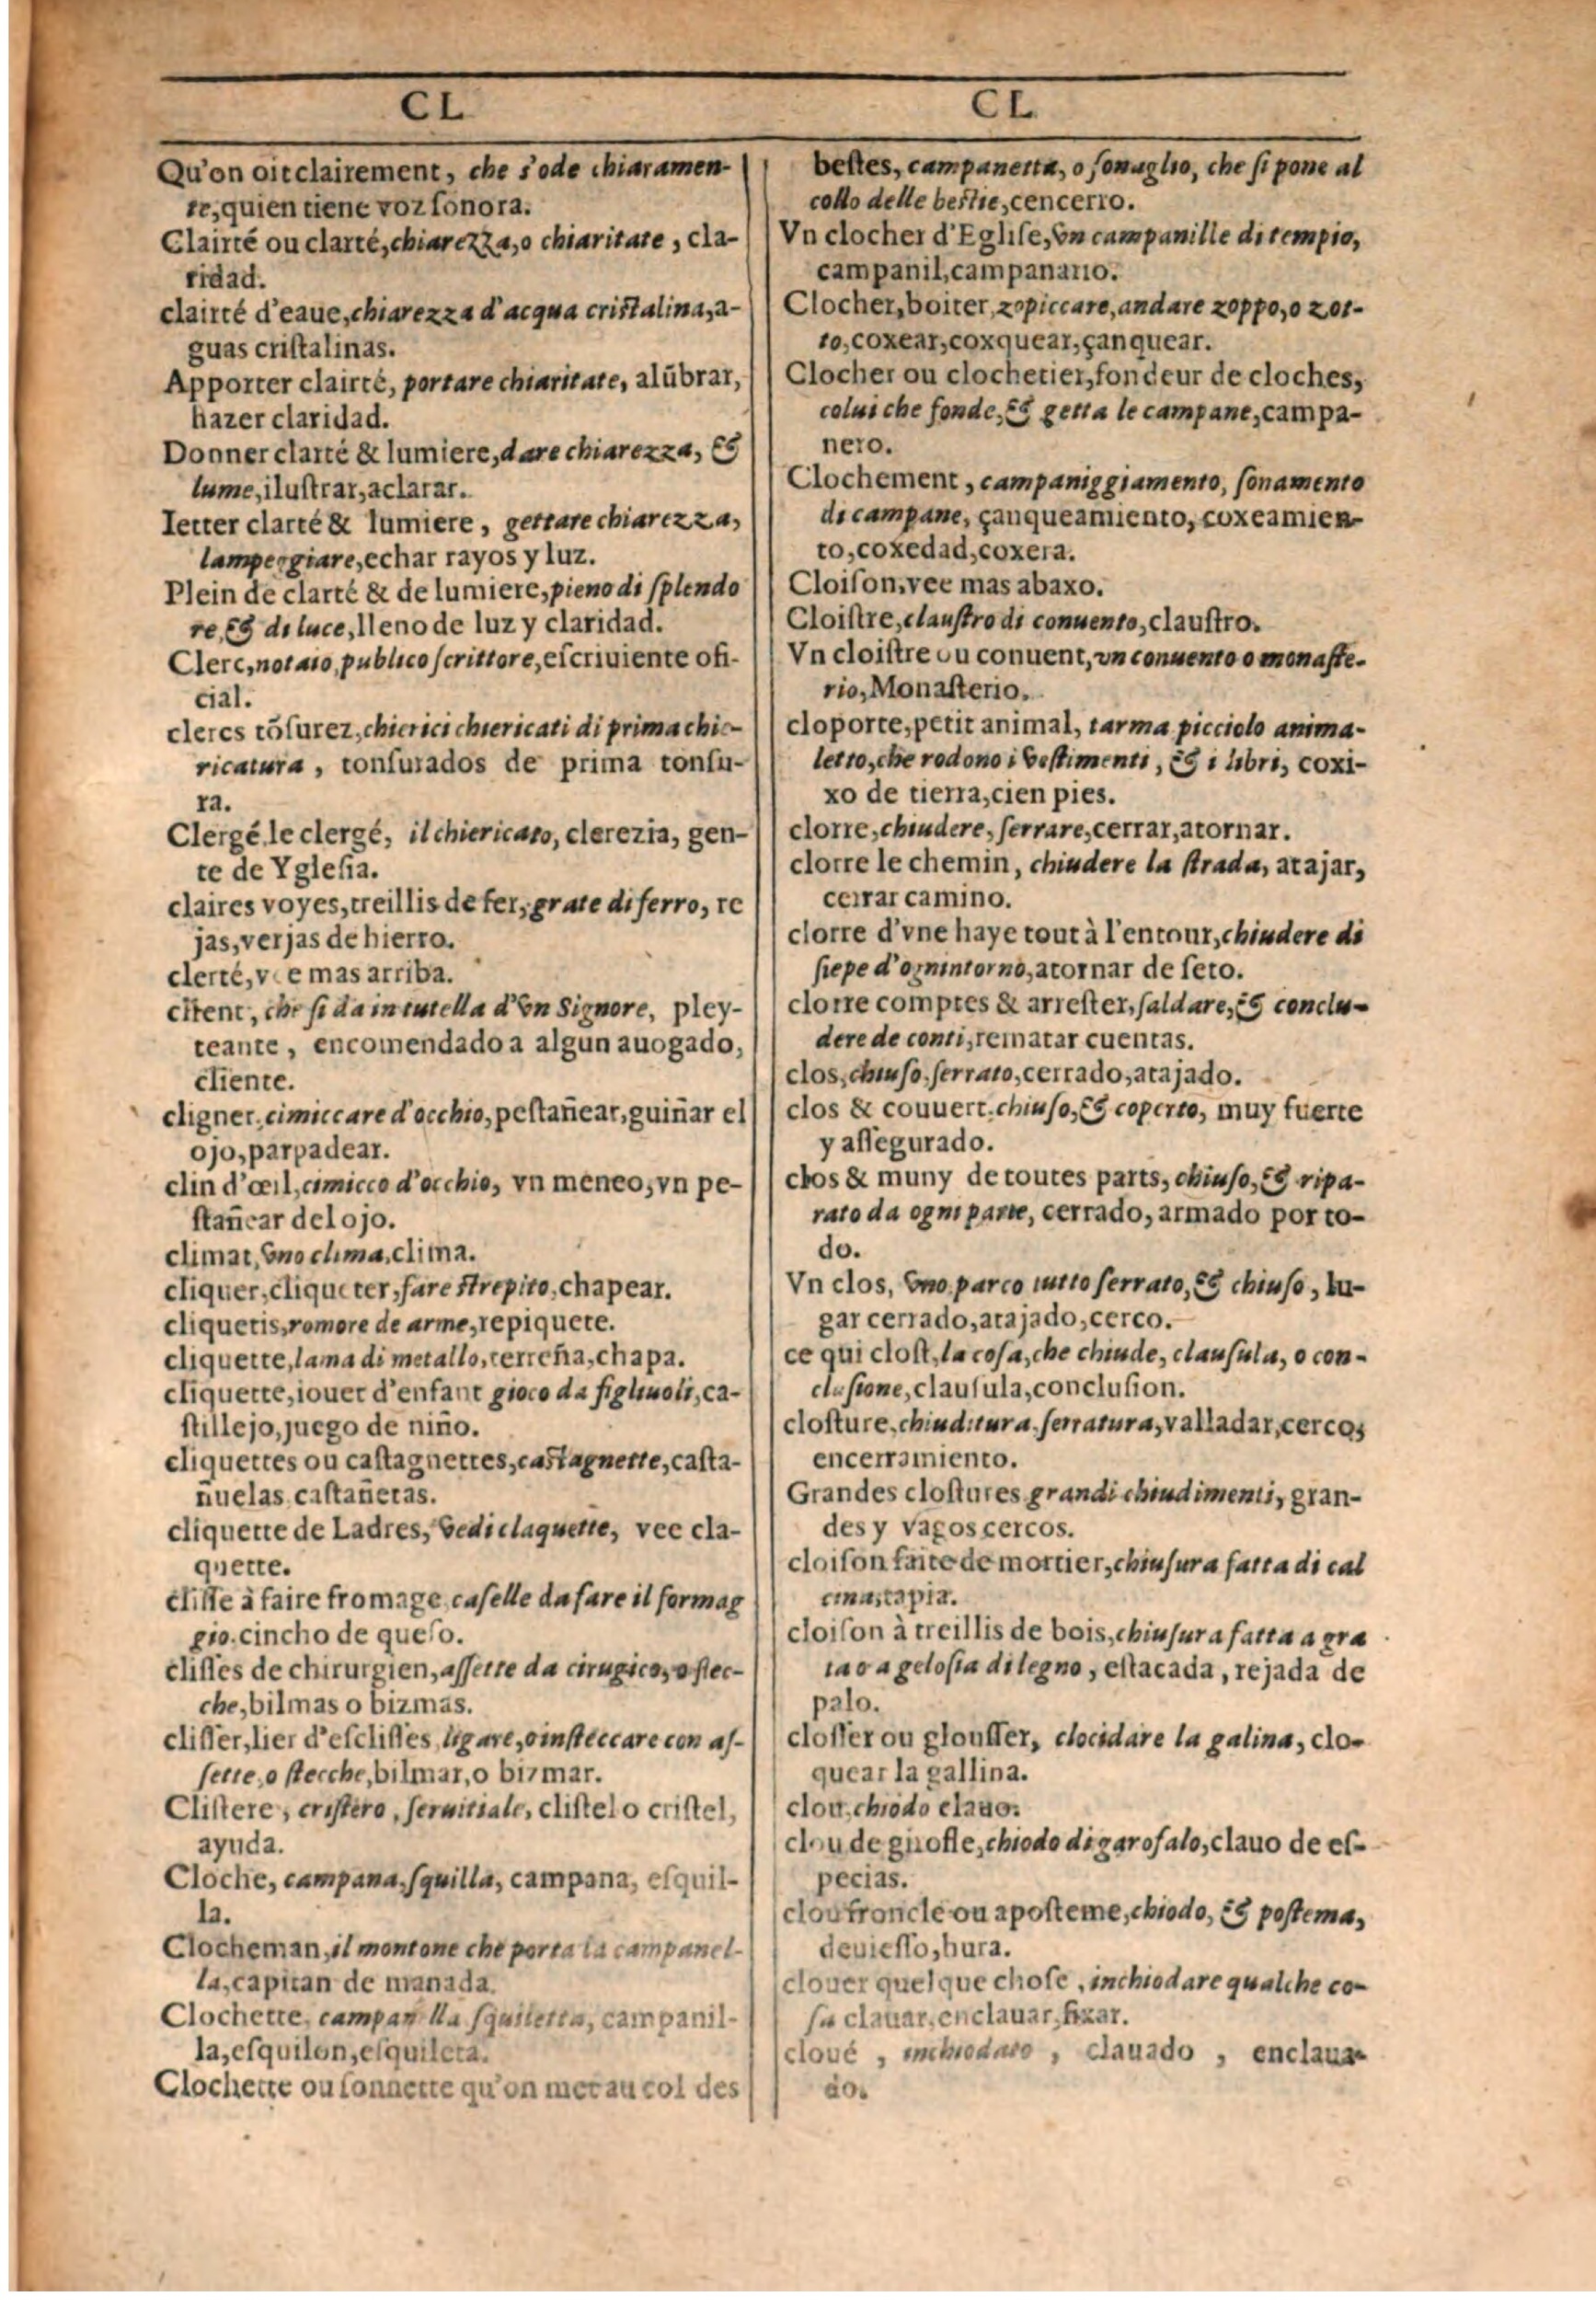 CL
Qu'on oit clairement, che s'ode chiaramen-
te, quien tiene voz ſonora.
Clairté ou clarté, chiarezza, o chiaritate, cla-
ridad.
clairté d'eaue, chiarezza d'acqua criſtalina, a-
guas criſtalinas.
Apporter clairté, portare chiaritate, alūbrar,
hazer claridad.
Donner clarté & lumiere, dare chiarezza, &
lume, iluſtrar, aclarar.
Ietter clarté & lumiere, gettare chiarezza,
lampeggiare, echar rayos y luz.
Plein de clarté & de lumiere, pieno di ſplendo
re, & di luce, lleno de luz y claridad.
Clerc, notaio, publico ſcrittore, eſcriuiente ofi-
cial.
clercs tōſurez, chierici chiericati di prima chie-
ricatura, tonſurados de prima tonſu-
ra.
Clergé, le clergé, il chiericato, clerezia, gen-
te de Ygleſia.
claires voyes, treillis de fer, grate di ferro, re
jas, verjas de hierro.
clerté, vee mas arriba.
client, che ſi da in tutella d'vn Signore, pley-
teante, encomendado a algun auogado,
cliente.
cligner, cimiccare d'occhio, peſtañear, guiñar el
ojo, parpadear.
clin d'œil, cimicco d'occhio, vn meneo, vn pe-
ſtañear del ojo.
climat, vno clima, clima.
cliquer, cliqueter, fare ſtrepito, chapear.
cliquetis, romore de arme, repiquete.
cliquette, lama di metallo, terreña, chapa.
cliquette, iouet d'enfant gioco da figliuoli, ca-
ſtillejo, juego de niño.
cliquettes ou caſtagnettes, caſtagnette, caſta-
ñuelas, caſtañetas.
cliquette de Ladres, vedi claquette, vee cla-
quette.
cliſſe à faire fromage, caſelle da fare il formag
gio, cincho de queſo.
cliſſes de chirurgien, aſſette da cirugico, o ſtec-
che, bilmas o bizmas.
cliſſer, lier d'eſcliſſes, ligare, o inſteccare con aſ-
ſette, o ſtecche, bilmar, o bizmar.
Cliſtere, criſtero, ſeruitiale, cliſtel o criſtel,
ayuda.
Cloche, campana, ſquilla, campana, eſquil-
la.
Clocheman, il montone che porta la campanel-
la, capitan de manada.
Clochette, campanella ſquiletta, campanil-
la, eſquilon, eſquileta.
Clochette ou ſonnette qu'on met au col des
CL
beſtes, campanetta, o ſonaglio, che ſi pone al
collo delle beſtie, cencerro.
Vn clocher d'Egliſe, vn campanille di tempio,
campanil, campanario.
Clocher, boiter, zopiccare, andare zoppo, o zot-
to, coxear, coxquear, çanquear.
Clocher ou clochetier, fondeur de cloches,
colui che fonde, & getta le campane, campa-
nero.
Clochement, campaniggiamento, ſonamento
di campane, çanqueamiento, coxeamien-
to, coxedad, coxera.
Cloiſon, vee mas abaxo.
Cloiſtre, clauſtro di conuento, clauſtro.
Vn cloiſtre ou conuent, vn conuento o monaſte-
rio, Monaſterio.
cloporte, petit animal, tarma picciolo anima-
letto, che rodono i veſtimenti, & i libri, coxi-
xo de tierra, cien pies.
clorre, chiudere, ſerrare, cerrar, atornar.
clorre le chemin, chiudere la ſtrada, atajar,
cerrar camino.
clorre d'vne haye tout à l'entour, chiudere di
ſiepe d'ognintorno, atornar de ſeto.
clorre comptes & arreſter, ſaldare, & conclu-
dere de conti, rematar cuentas.
clos, chiuſo, ſerrato, cerrado, atajado.
clos & couuert, chiuſo, & coperto, muy fuerte
y aſſegurado.
clos & muny de toutes parts, chiuſo, & ripa-
rato da ogni parte, cerrado, armado por to-
do.
Vn clos, vno parco tutto ſerrato, & chiuſo, lu-
gar cerrado, atajado, cerco.
ce qui cloſt, la coſa, che chiude, clauſula, o con-
cluſione, clauſula, concluſion.
cloſture, chiuditura, ſerratura, valladar, cerco,
encerramiento.
Grandes cloſtures grandi chiudimenti, gran-
des y vagos cercos.
cloiſon faite de mortier, chiuſura fatta di cal
cina, tapia.
cloiſon à treillis de bois, chiuſura fatta a gra
ta o a geloſia di legno, eſtacada, rejada de
palo.
cloſſer ou glouſſer, clocidare la galina, clo-
quear la gallina.
clou, chiodo clauo.
clou de girofle, chiodo di garofalo, clauo de eſ-
pecias.
clou froncle ou apoſteme, chiodo, & poſtema,
deuieſſo, hura.
clouer quelque choſe, inchiodare qualche co-
ſa clauar, enclauar, fixar.
cloué, inchiodato, clauado, enclaua-
do.